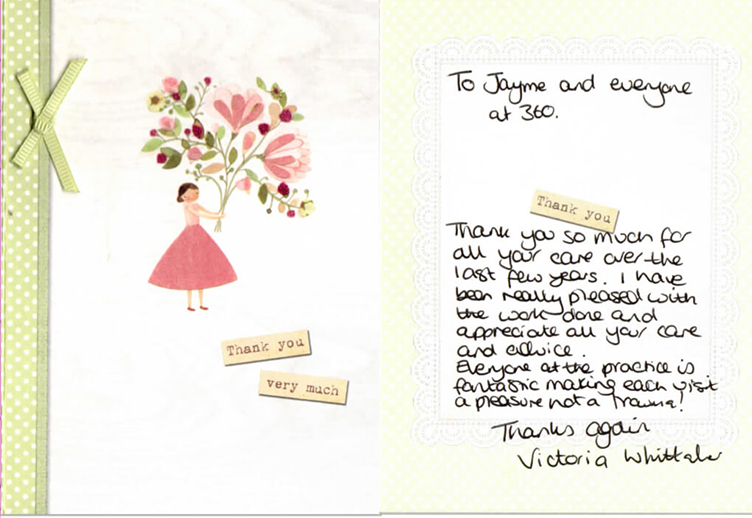 Thank you
very much
To Jayme and everyone
at 360.
Thank you
Thank you so much for
all your care over the
last few years. I have
been really pleased with
the work done and
appreciate all your care
and advice.
Everyone at the practice is
fantastic making each visit
a pleasure not a Trauma!
Thanks again
Victoria Whittaker